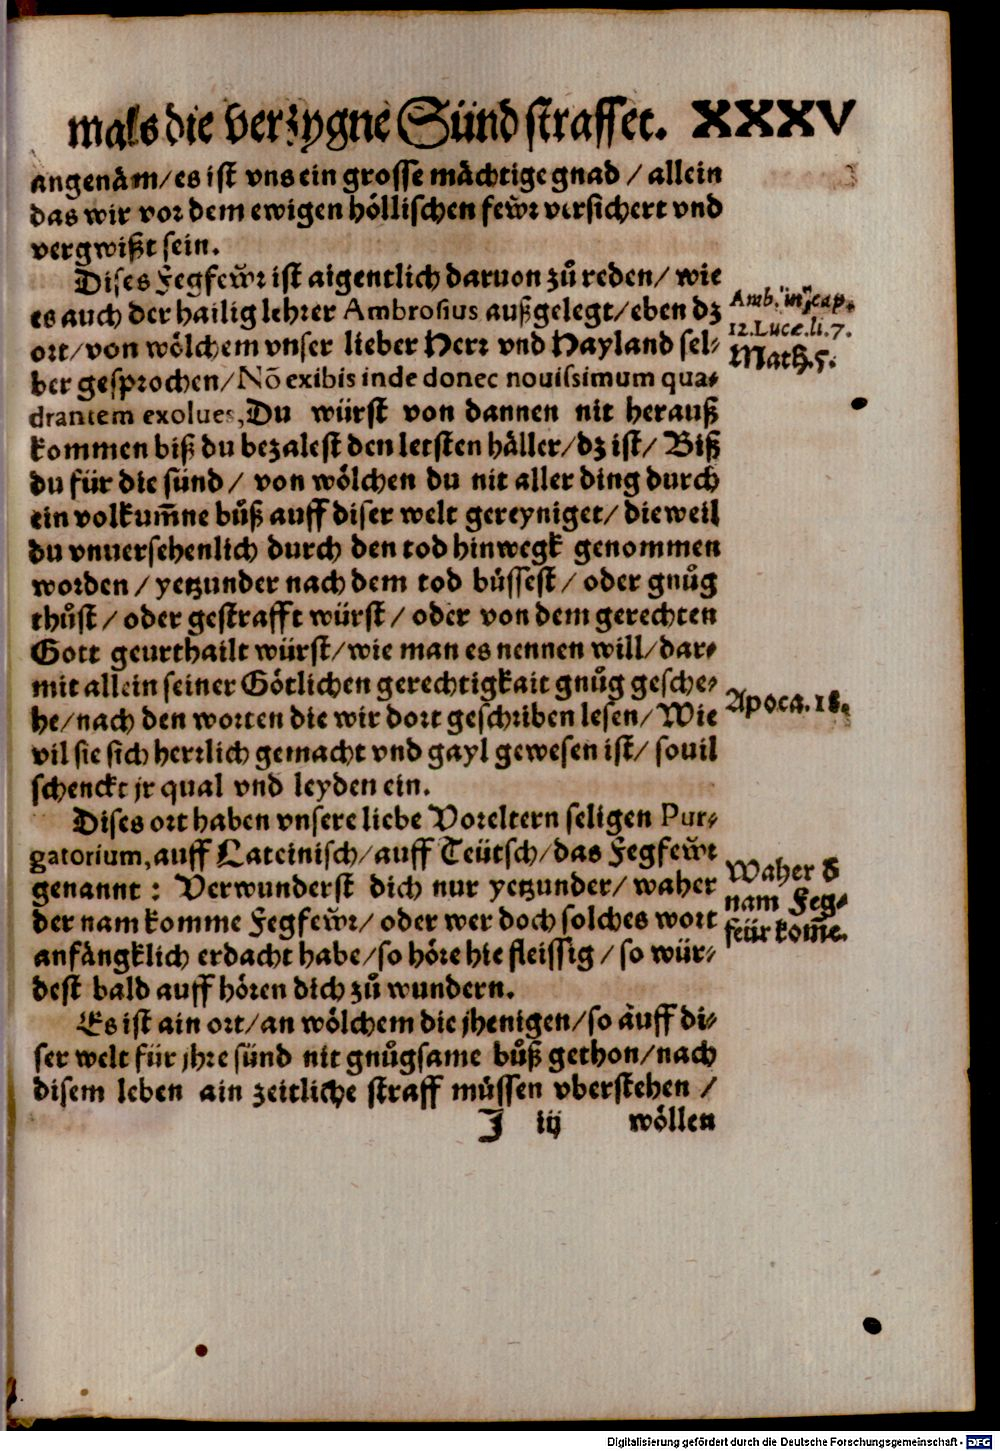 mals die verzygne Sünd straffet. XXXV
angenäm/es ist vns ein grosse mächtige gnad / allein
das wir vor dem ewigen höllischen fewr versichert vnd
vergwißt sein.
Dises Fegfewr ist aigentlich daruon zů reden/ wie
es auch der hailig lehrer Ambrosius außgelegt/eben dz
ort/von wölchem vnser lieber Herr vnd Hayland sel-
ber gesprochen/Nõ exibis inde donec nouissimum qua-
drantem exolues, Du würst von dannen nit herauß
kommen biß du bezalest den letsten häller/dz ist/ Biß
du für die sünd/ von wölchen du nit aller ding durch
ein volkum̃ne bůß auff diser welt gereyniget/ dieweil
du vnuersehenlich durch den tod hinwegk genommen
worden / yetzunder nach dem tod büssest / oder gnůg
thůst / oder gestrafft würst / oder von dem gerechten
Gott geurthailt würst/wie man es nennen will/dar-
mit allein seiner Götlichen gerechtigkait gnůg gesche-
he/nach den worten die wir dort geschriben lesen/Wie
vil sie sich herrlich gemacht vnd gayl gewesen ist/ souil
schenckt jr qual vnd leyden ein.
Dises ort haben vnsere liebe Voreltern seligen Pur-
gatorium, auff Lateinisch/auff Teütsch/das Fegfewr
genannt : Verwunderst dich nur yetzunder/ waher
der nam komme Fegfewr/ oder wer doch solches wort
anfängklich erdacht habe/so höre hie fleissig / so wür-
dest bald auff hören dich zů wundern.
Es ist ain ort/an wölchem die jhenigen/so auff di-
ser welt für jhre sünd nit gnůgsame bůß gethon/nach
disem leben ain zeitliche straff müssen vberstehen /
J iij wöllen
Amb. in cap.
12. Luce. li. 7.
Math. 5.
Apoca. 18.
Waher d
nam Feg-
feür kom̃e.
Digitalisierung gefördert durch die Deutsche Forschungsgemeinschaft - DFG